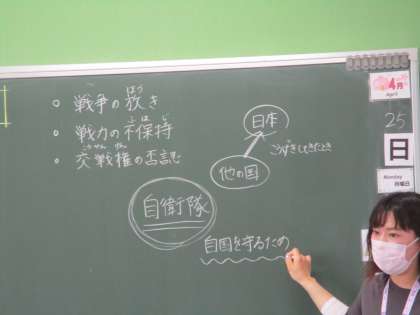 ほう
戦争の放き
ふ ほ じ
戦力の不保持
こうせん けん
交戦権の否認
日本
こうげきしてきたとき
他の国
自衛隊
自国を守るため
4月
April
25
日
Monday
月曜日